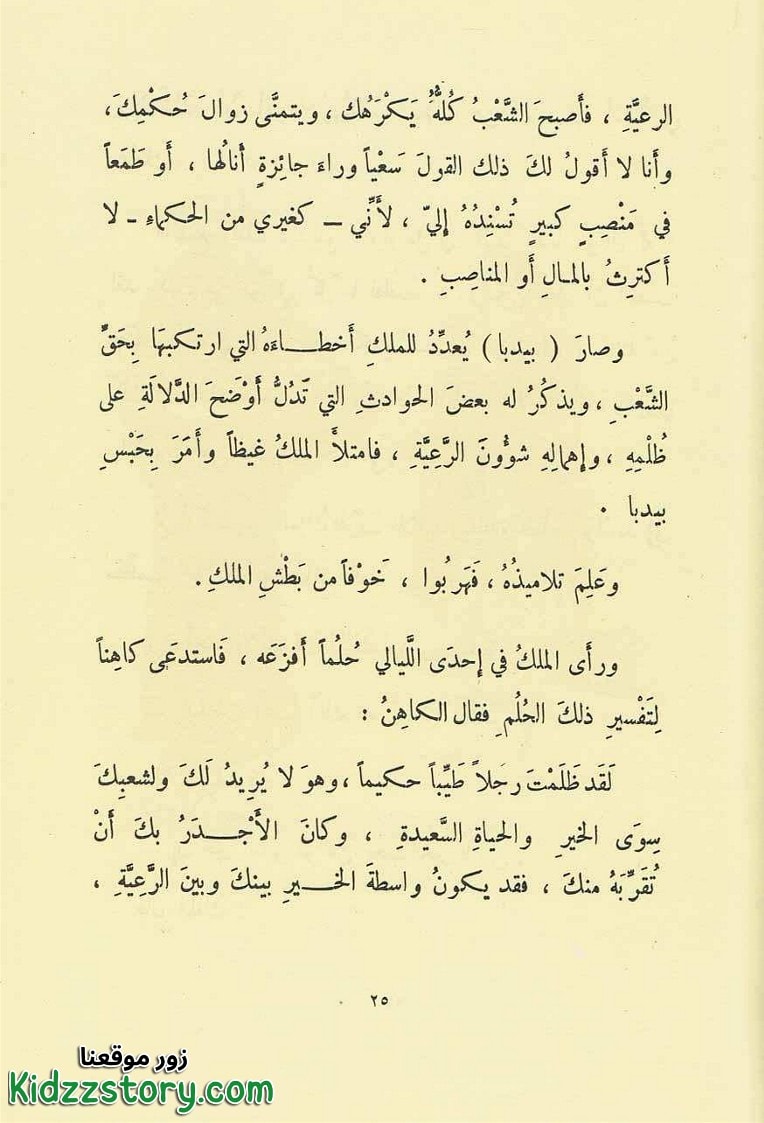 الرعيَّةِ ، فأَصبحَ الشَّعْبُ كُلهُّ يَكْرَهُك ، ويتمنَّى زوالَ حُكْمِكَ ،
وأَنا لا أَقولُ لكَ ذلك القولَ سَعْياً وراءَ جائِزةٍ أَنالُها ، أَو طَمَعاً
في مَنْصِبٍ كبيرٍ تُسْنِدُهُ إليّ ، لأَنِّي – كغيري من الحكماءِ – لا
أَكترِثُ بالمالِ أَو المناصِبِ .
وصارَ ( بيدبا ) يُعدِّدُ للملكِ أَخطاءَهُ التي ارتكبهَا بِحَقِّ
الشَّعْبِ ، ويذكُرُ له بعضَ الحوادثِ التي تَدُلُّ أَوْضَحَ الدَّلالَةِ على
ظُلْمِهِ ، وإهمالِهِ شؤُونَ الرَّعِيَّةِ ، فامتلأَ الملكُ غيظاً وأَمَرَ بِحَبْسِ
بيدبا .
وعَلِمَ تلاميذُهُ ، فَهَربُوا ، خَوْفاً من بَطْشِ الملكِ .
ورأَى الملكُ في إحدَى اللَّيالي حُلُماً أَفزَعَه ، فَاستدعَى كاهِناً
لِتَفْسيرِ ذلكَ الحُلُمِ فقال الكاهِنُ :
لَقَد ظَلَمْتَ رجُلاً طَيِّباً حكيماً ، وهوَ لا يُرِيدُ لَكَ ولشعبِكَ
سِوَى الخيرِ والحياةِ السَّعيدةِ ، وكانَ الأَجْدَرُ بكَ أَنْ
تُقَرِّبَهُ منكَ ، فقد يكونُ واسطةَ الخيرِ بينكَ وبينَ الرَّعِيَّةِ ،
٢٥
زور موقعنا
Kidzzstory.com